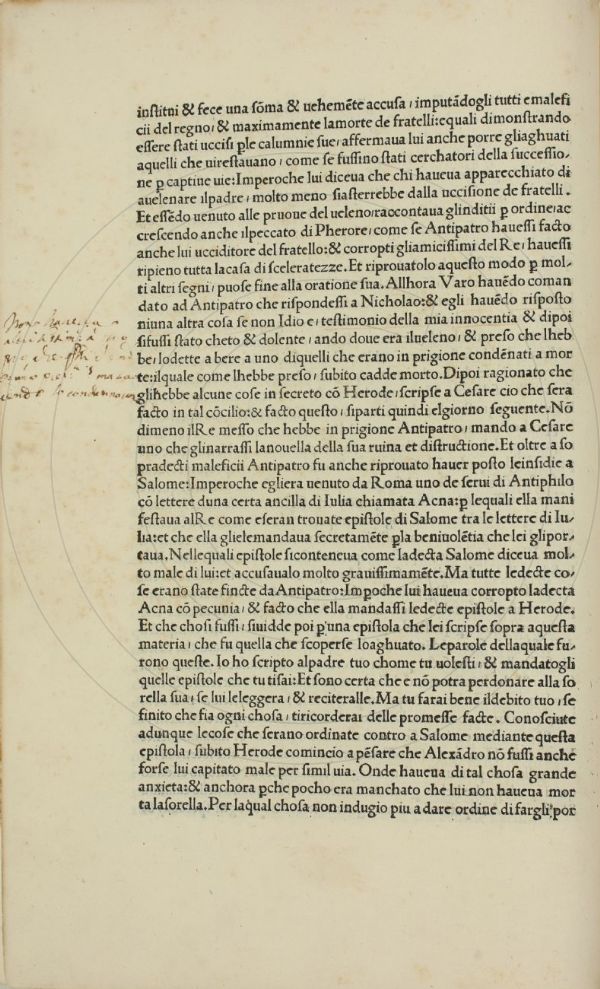 institui & fece una sōma & uehemēte accusa, imputādogli tutti emalefi
cii del regno, & maximamente lamorte de fratelli: equali dimonstrando
essere stati uccisi ꝑle calumnie sue, affermaua lui anche porre gliaghuati
aquelli che uirestauano, come se fussino stati cerchatori della successio-
ne ꝑ captiue uie: Imperoche lui diceua che chi haueua apparecchiato di
auelenare ilpadre, molto meno siasterrebbe dalla uccisione de fratelli.
Et essēdo uenuto alle pruoue del ueleno, raccontaua glinditii ꝑ ordine, ac
crescendo anche ilpeccato di Pherore, come se Antipatro hauessi facto
anche lui ucciditore del fratello: & corropti gliamicissimi del Re, hauessi
ripieno tutta lacasa di sceleratezze. Et riprouatolo aquesto modo ꝑ mol-
ti altri segni, puose fine alla oratione sua. Allhora Varo hauēdo coman
dato ad Antipatro che rispondessi a Nicholao: & egli hauēdo risposto
niuna altra cosa se non Idio e, testimonio della mia innocentia & dipoi
sifussi stato cheto & dolente, ando doue era ilueleno, & preso che lheb
be, lodette a bere a uno diquelli che erano in prigione condēnati a mor
te: ilquale come lhebbe preso, subito cadde morto. Dipoi ragionato che
glihebbe alcune cose in secreto cō Herode, scripse a Cesare cio che sera
facto in tal cōcilio: & facto questo, siparti quindi elgiorno seguente. Nō
dimeno ilRe messo che hebbe in prigione Antipatro, mando a Cesare
uno che glinarrassi lanouella della sua ruina et distructione. Et oltre a so
pradecti maleficii Antipatro fu anche riprouato hauer posto leinsidie a
Salome: Imperoche egliera uenuto da Roma uno de serui di Antiphilo
cō lettere duna certa ancilla di Iulia chiamata Acna: ꝑ lequali ella mani
festaua alRe come eseran trouate epistole di Salome tra le lettere di Iu-
lia: et che ella glielemandaua secretamēte ꝑla beniuolētia che lei glipor-
taua. Nellequali epistole siconteneua come ladecta Salome diceua mol-
to male di lui: et accusaualo molto grauissimamēte. Ma tutte ledecte co-
se erano state fincte da Antipatro: Imꝑoche lui haueua corropto ladecta
Acna cō pecunia, & facto che ella mandassi ledecte epistole a Herode.
Et che chosi fussi, siuidde poi ꝑ'una epistola che lei scripse sopra aquesta
materia, che fu quella che scoperse loaghuato. Leparole dellaquale fu-
rono queste. Io ho scripto alpadre tuo chome tu uolesti, & mandatogli
quelle epistole che tu tisai: Et sono certa che e nō potra perdonare alla so
rella sua, se lui leleggera, & reciteralle. Ma tu farai bene ildebito tuo, se
finito che fia ogni chosa, tiricorderai delle promesse facte. Conosciute
adunque lecose che serano ordinate contro a Salome mediante questa
epistola, subito Herode comincio a pēsare che Alexādro nō fussi anche
forse lui capitato male per simil uia. Onde haueua di tal chosa grande
anxieta: & anchora ꝑche pocho era manchato che lui non haueua mor
ta lasorella. Per laqual chosa non indugio piu a dare ordine di fargli por